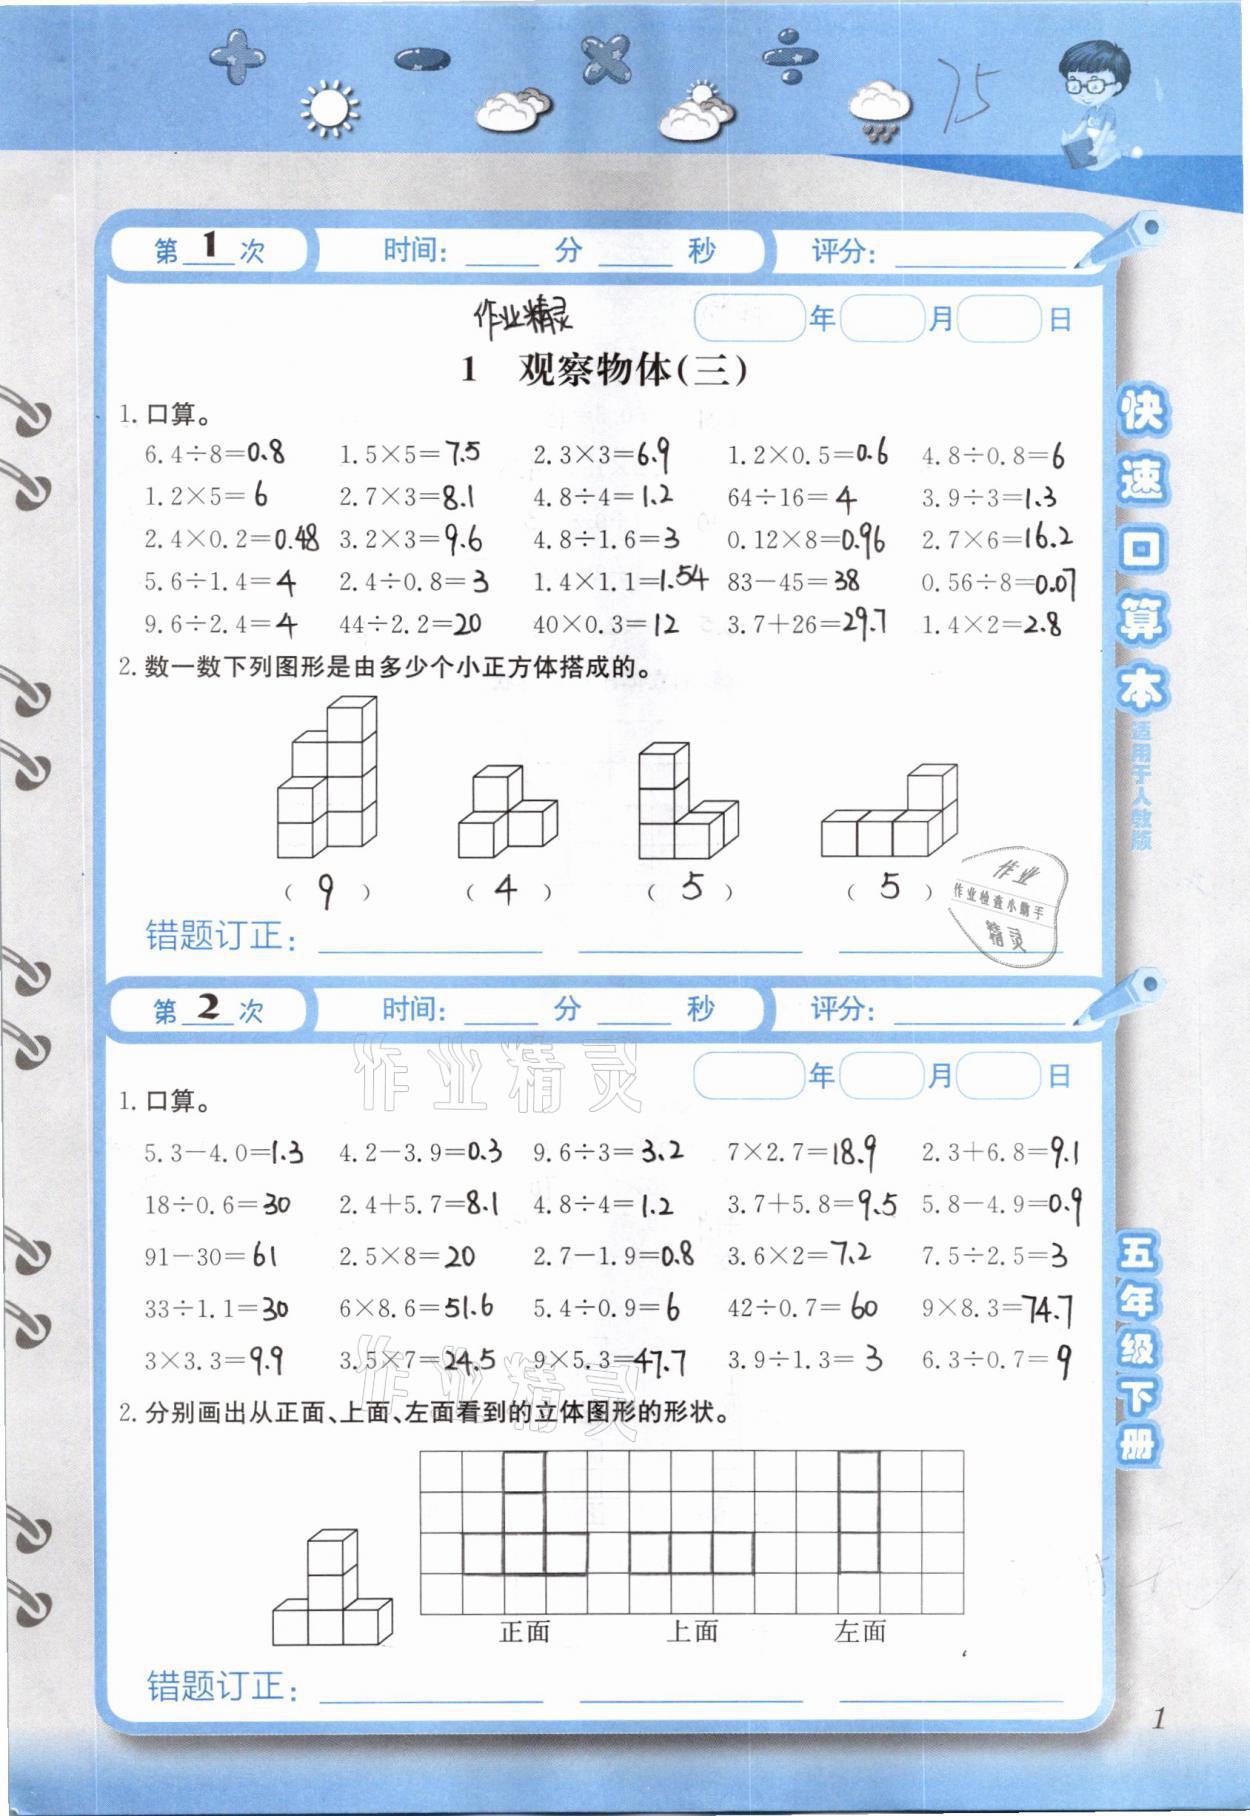 75
第 1 次 时间: 分 秒 评分:
作业精灵
年 月 日
1 观察物体(三)
1. 口算。
6.4÷8=0.8 1.5×5=7.5 2.3×3=6.9 1.2×0.5=0.6 4.8÷0.8=6
1.2×5=6 2.7×3=8.1 4.8÷4=1.2 64÷16=4 3.9÷3=1.3
2.4×0.2=0.48 3.2×3=9.6 4.8÷1.6=3 0.12×8=0.96 2.7×6=16.2
5.6÷1.4=4 2.4÷0.8=3 1.4×1.1=1.54 83-45=38 0.56÷8=0.07
9.6÷2.4=4 44÷2.2=20 40×0.3=12 3.7+26=29.7 1.4×2=2.8
2. 数一数下列图形是由多少个小正方体搭成的。
( 9 ) ( 4 ) ( 5 ) ( 5 )
作业
作业检查小助手
精灵
错题订正:
第 2 次 时间: 分 秒 评分:
作业精灵
年 月 日
1. 口算。
5.3-4.0=1.3 4.2-3.9=0.3 9.6÷3=3.2 7×2.7=18.9 2.3+6.8=9.1
18÷0.6=30 2.4+5.7=8.1 4.8÷4=1.2 3.7+5.8=9.5 5.8-4.9=0.9
91-30=61 2.5×8=20 2.7-1.9=0.8 3.6×2=7.2 7.5÷2.5=3
33÷1.1=30 6×8.6=51.6 5.4÷0.9=6 42÷0.7=60 9×8.3=74.7
3×3.3=9.9 3.5×7=24.5 9×5.3=47.7 3.9÷1.3=3 6.3÷0.7=9
作业精灵
2. 分别画出从正面、上面、左面看到的立体图形的形状。
正面 上面 左面
错题订正:
快速口算本
适用于人教版
五年级下册
1